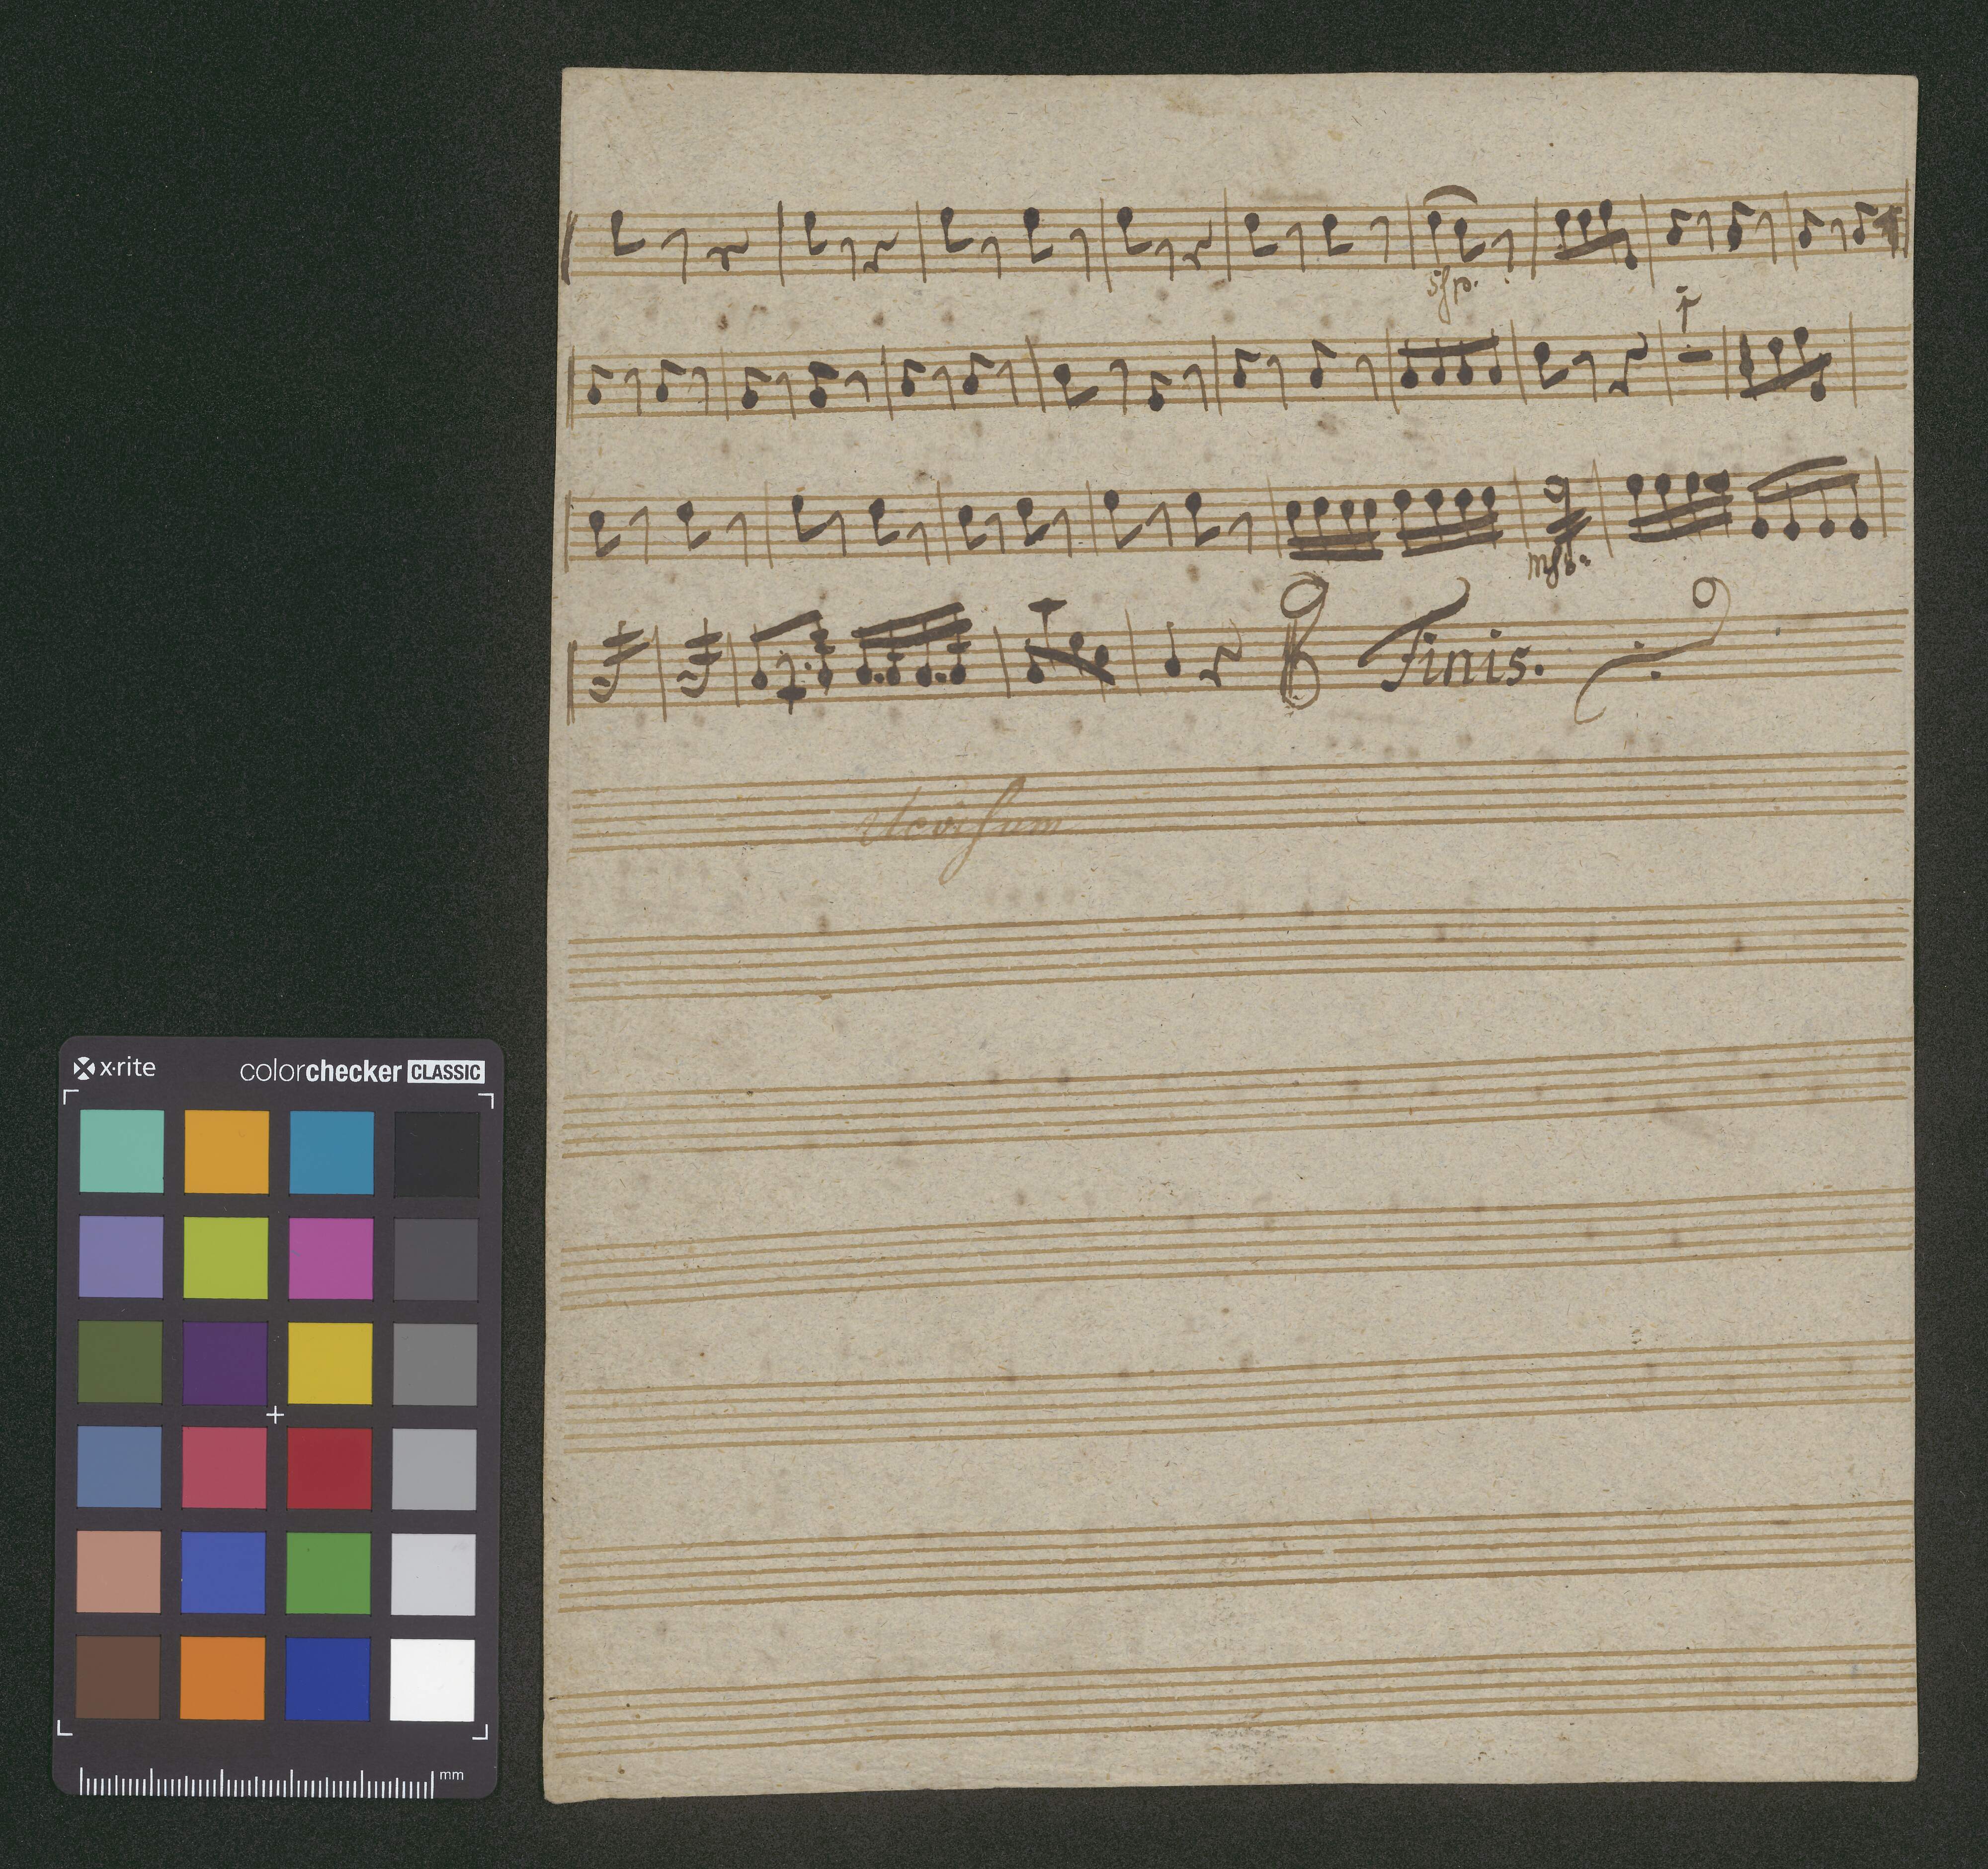 sfp.
mf:
Finis.
x·rite
colorchecker CLASSIC
mm